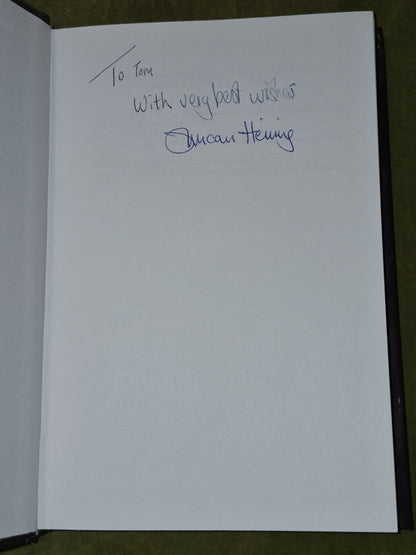 To Tom
With very best wishes
Duncan Heining